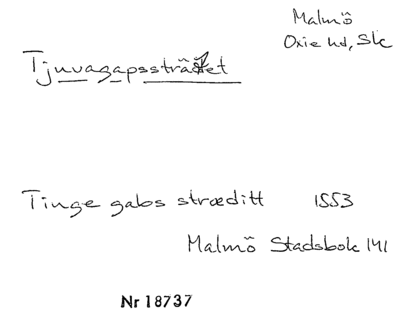 Malmö
Oxie hd, Sk
Tjuvagapssträdet
Tinge gabs stræditt 1553
Malmö Stadsbok 141
Nr 18737